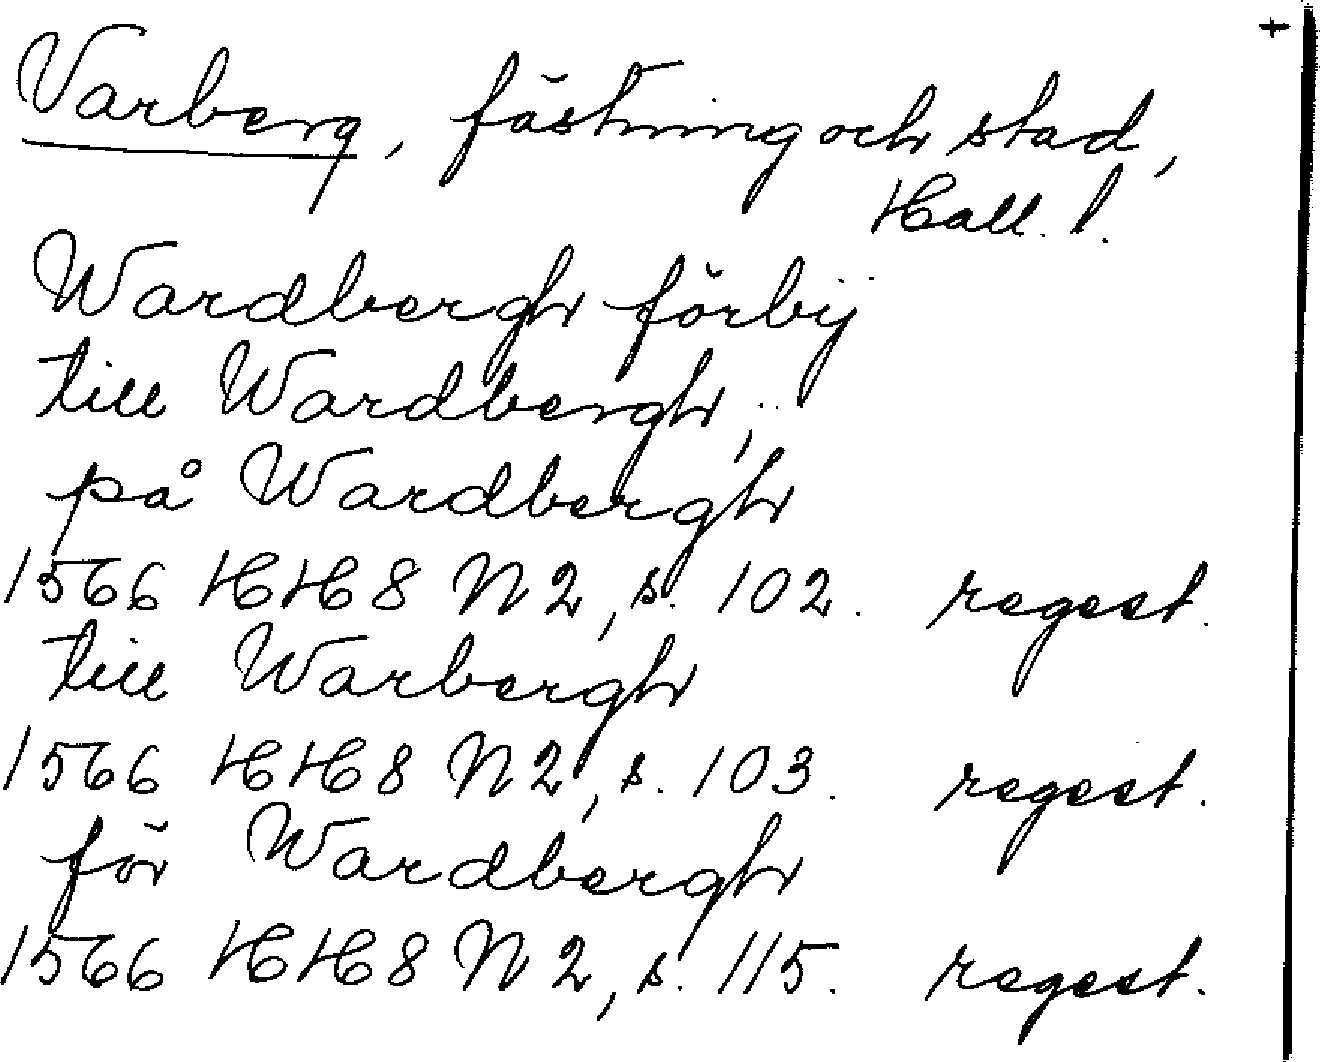 +
Varberg, fästning och stad,
Hall. l.
Wardbergh förbij
till Wardbergh,
på Wardbergh
1566 HH8 N2, s. 102. regest.
till Warbergh
1566 HH8 N2, s. 103. regest.
för Wardbergh
1566 HH8 N2, s. 115. regest.